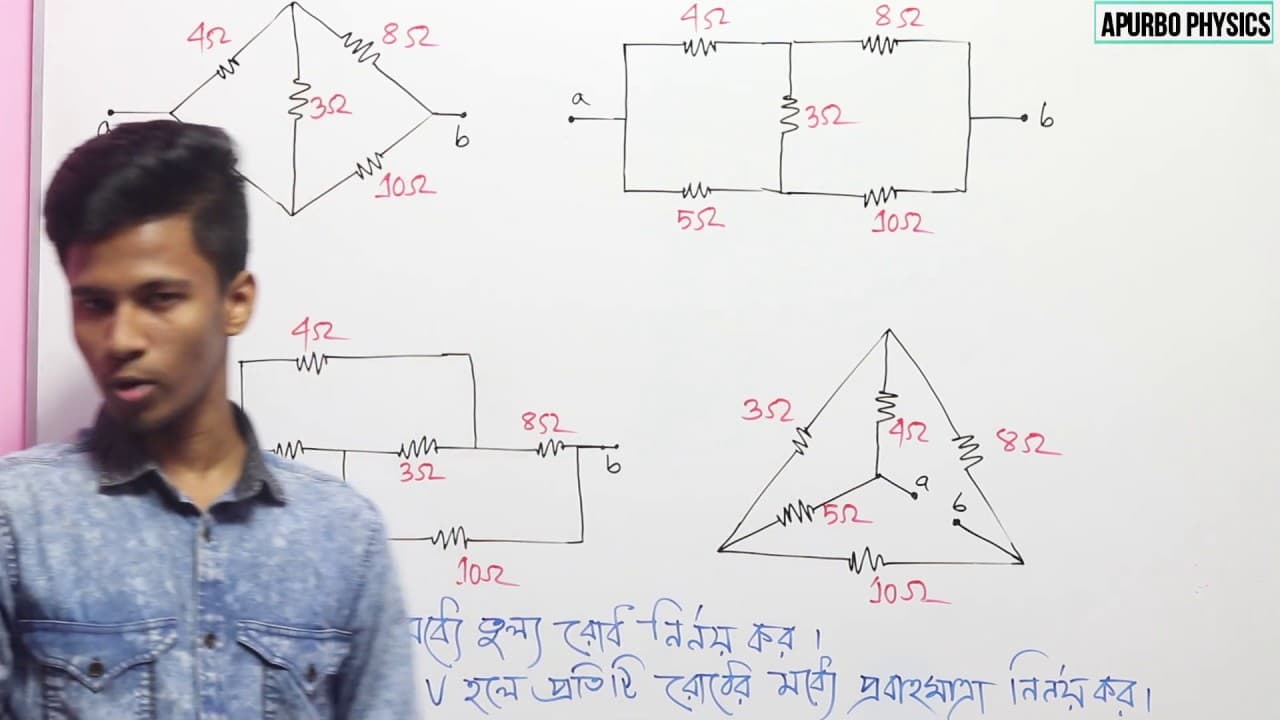 APURBO PHYSICS
4Ω
8Ω
3Ω
10Ω
b
a
4Ω
8Ω
3Ω
5Ω
10Ω
b
4Ω
3Ω
8Ω
10Ω
b
3Ω
4Ω
8Ω
5Ω
10Ω
a
b
তুল্য রোধ নির্ণয় কর।
V হলে প্রতিটি রোধের মধ্যে প্রবাহমাত্রা নির্ণয় কর।